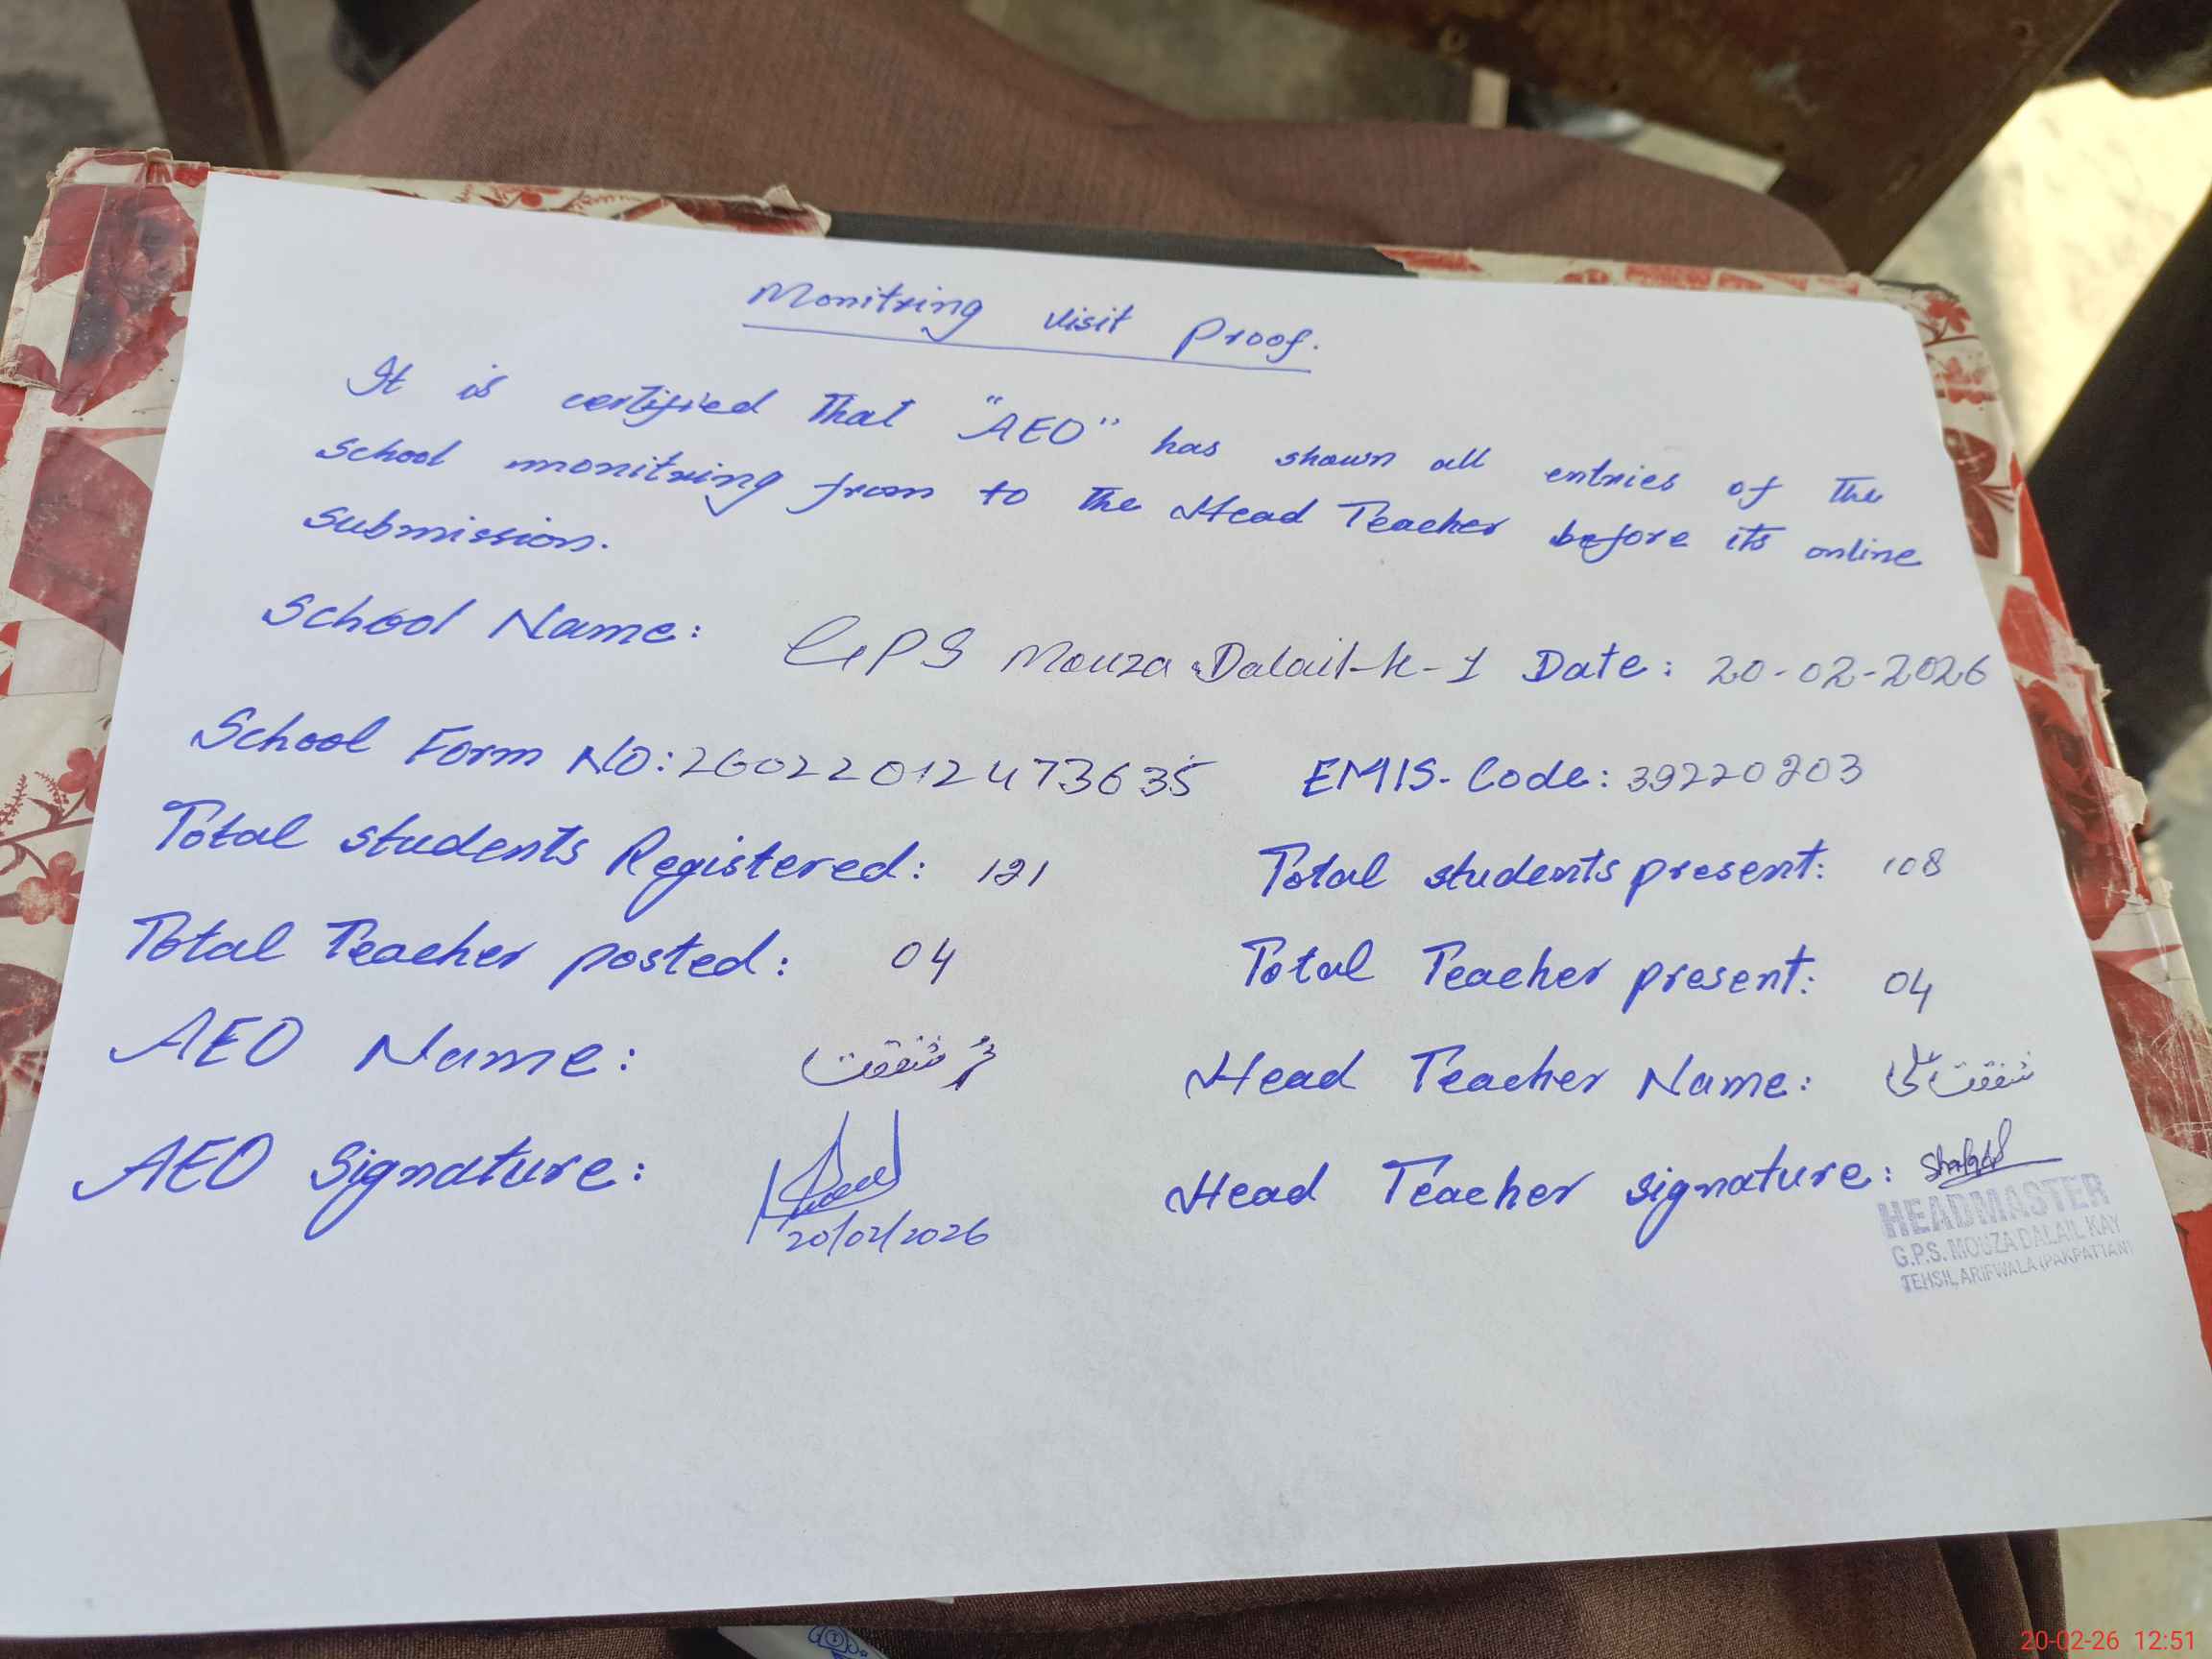 Monitring visit proof.
It is certified That "AEO" has shown all entries of The
School monitring from to The Head Teacher before its online
submission.
School Name: GPS Mouza Dalail-k-1 Date: 20-02-2026
School Form NO: 26022012473635 EMIS-Code: 39220203
Total students Registered: 121 Total students present: 108
Total Teacher posted: 04 Total Teacher present: 04
AEO Name: محمد شفقت Head Teacher Name: شفقت علی
AEO Signature: Head Teacher signature:
20/02/2026
HEADMASTER
G.P.S. MOUZA DALAIL KAY
TEHSIL ARIFWALA (PAKPATTAN)
20-02-26 12:51